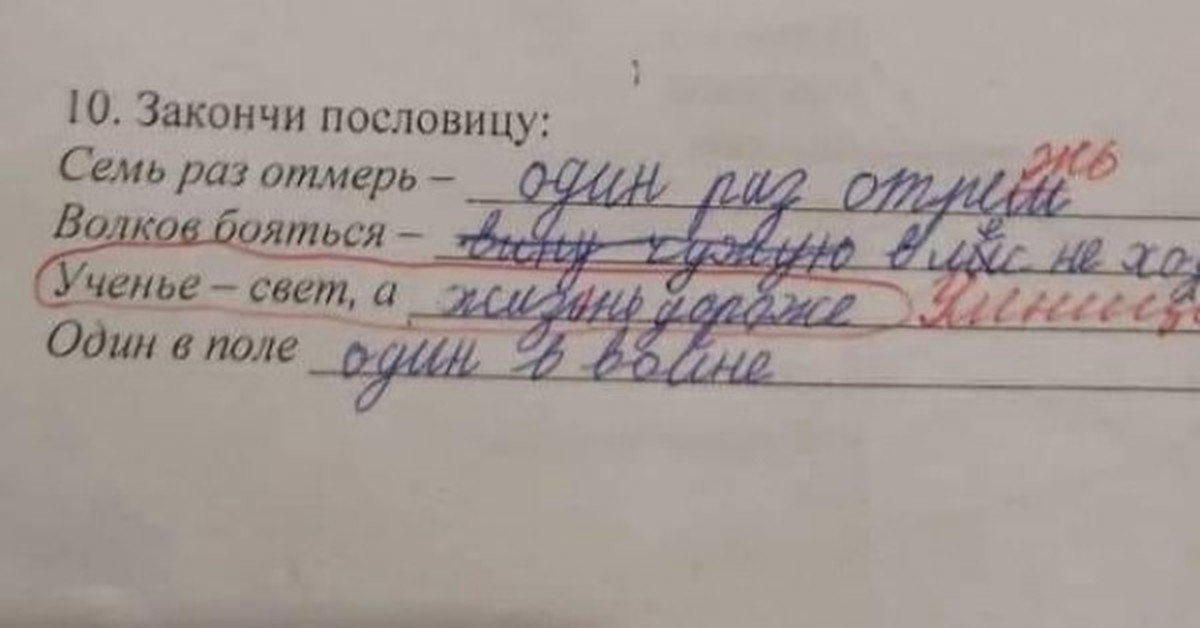 10. Закончи пословицу:
Семь раз отмерь – один раз отреш жь
Волков бояться – вину чужую в лес не ход
Ученье – свет, а жизонь дороже Умниц
Один в поле один в войне